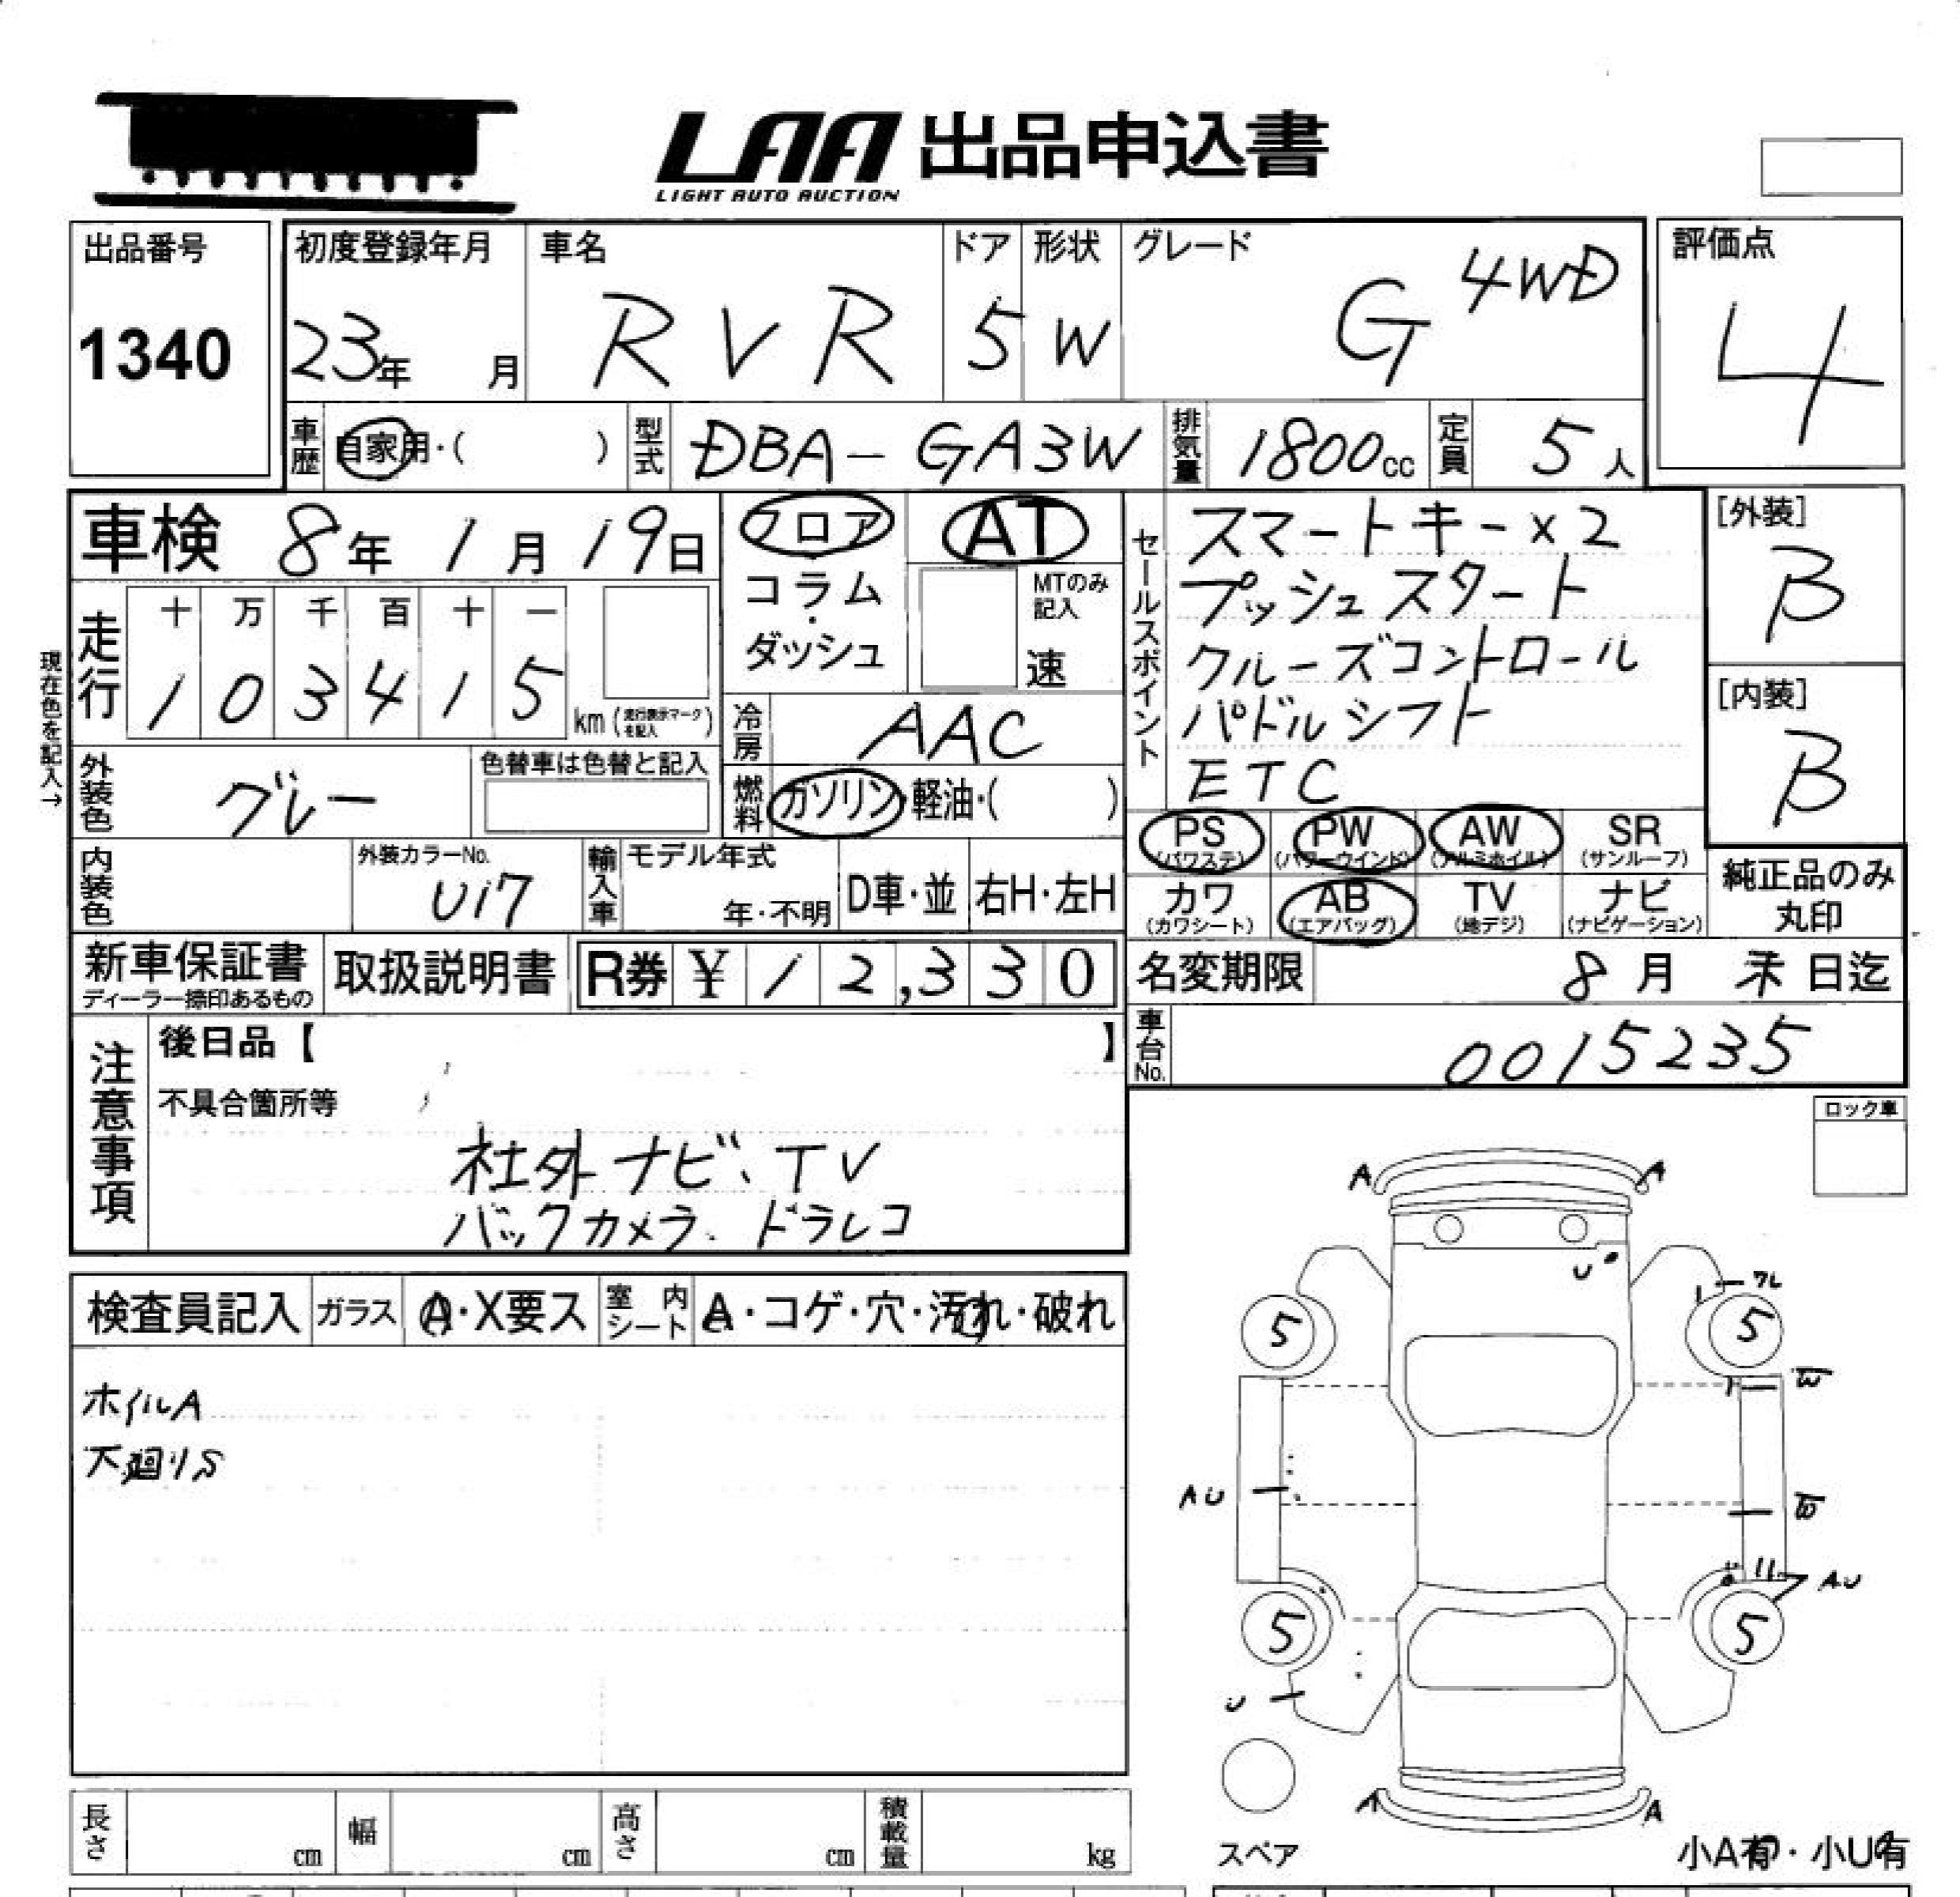 LAA 出品申込書
LIGHT AUTO AUCTION
出品番号
1340
初度登録年月
23年 月
車名
RVR
ドア
5
形状
W
グレード
G 4WD
評価点
4
車歴 自家用・( )
型式 DBA-GA3W
排気量 1800cc
定員 5人
車検 8年 1月 19日
フロア・コラム・ダッシュ
AT
MTのみ記入
速
セールスポイント
スマートキー×2
プッシュスタート
クルーズコントロール
パドルシフト
ETC
[外装]
B
[内装]
B
現在色を記入→
走行
十 万 千 百 十 一
1 0 3 4 1 5 km (走行表示マークを記入)
冷房 AAC
外装色 グレー
色替車は色替と記入
燃料 ガソリン・軽油・( )
PS (パワステ) PW (パワーウインド) AW (アルミホイル) SR (サンルーフ)
カワ (カワシート) AB (エアバッグ) TV (地デジ) ナビ (ナビゲーション)
純正品のみ
丸印
内装色
外装カラーNo.
U17
輸入車
モデル年式
年・不明
D車・並
右H・左H
新車保証書
ディーラー捺印あるもの
取扱説明書
R券 ¥12,330
名変期限 8月 末日迄
車台No. 0015235
注意事項
後日品【 】
不具合箇所等
社外ナビ、TV
バックカメラ、ドラレコ
ロック車
検査員記入 ガラス A・X要ス 室内シート A・コゲ・穴・汚れ・破れ
ホイルA
下廻りS
A A
U
ワレ
5 5
W
AU
W
AU
5 5
U
A A
スペア
小A有・小U有
長さ cm 幅 cm 高さ cm 積載量 kg